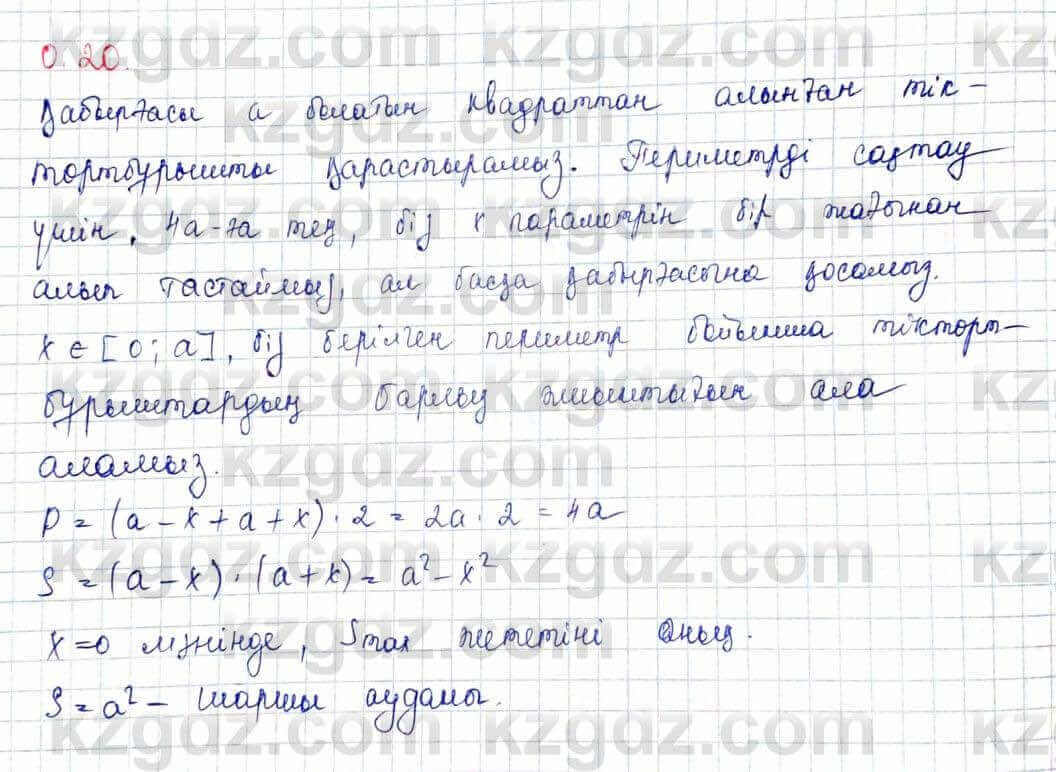 0.20.
Қабырғасы а болатын квадраттан алынған тік-
төртбұрышты қарастырамыз. Периметрді сақтау
үшін, 4а-ға тең, біз x параметрін бір жағынан
алып тастаймыз, ал басқа қабырғасына қосамыз.
x ∈ [0; a], біз берілген периметр бойынша тіктөрт-
бұрыштардың барлық жиынтығын ала
аламыз.
P = (a - x + a + x) · 2 = 2a · 2 = 4a
S = (a - x) · (a + x) = a² - x²
x = 0 мәнінде, Smax жететіні анық.
S = a² - шаршы ауданы.